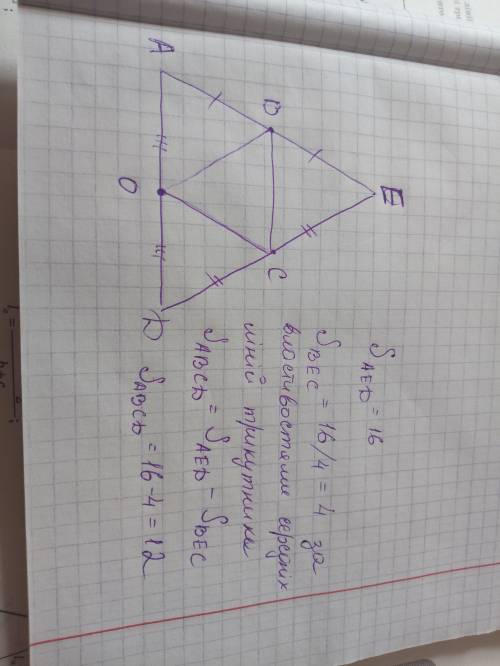 A
B
E
O
C
D
S AED = 16
S BEC = 16/4 = 4 за
властивостями середніх
ліній трикутника
S ABCD = S AED - S BEC
S ABCD = 16-4 = 12